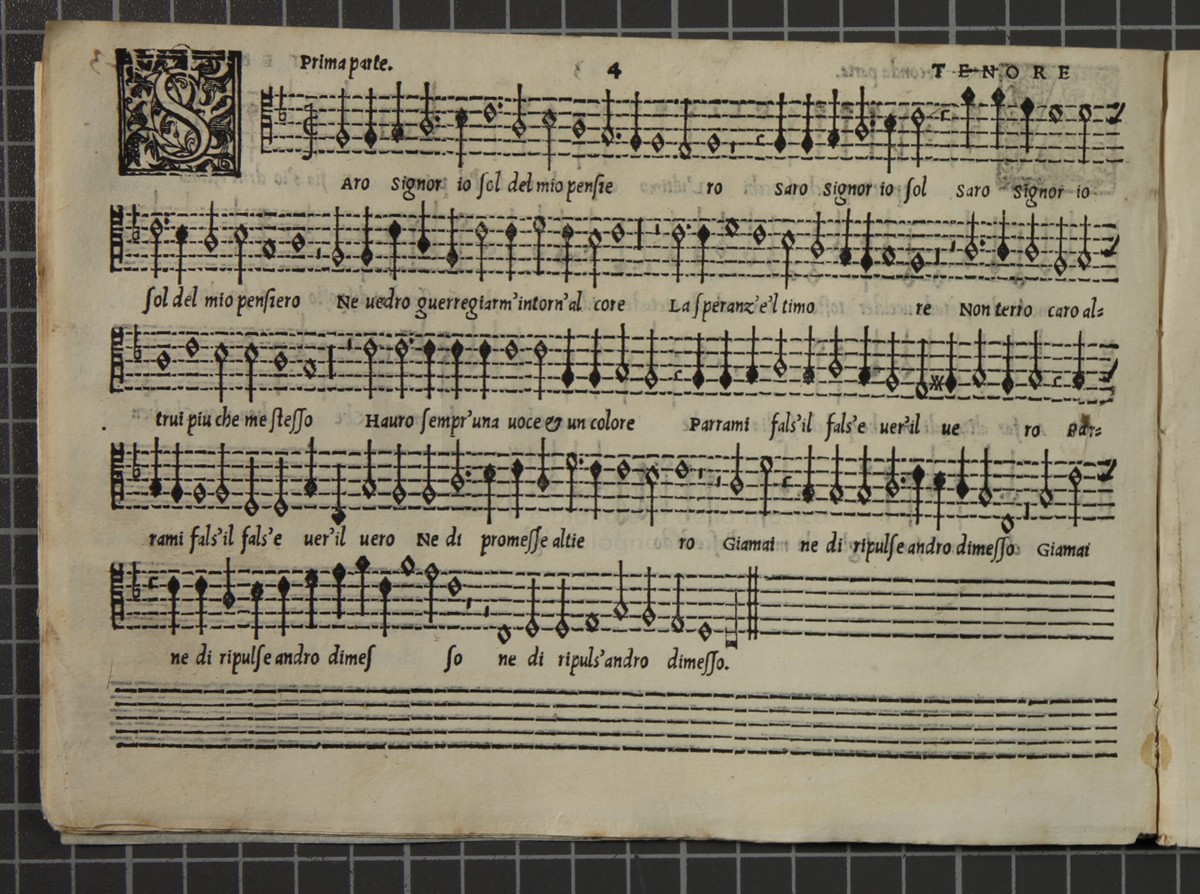 Prima parte. 4 TENORE
S
ARO signor io sol del mio pensie ro saro signor io sol saro signor io
sol del mio pensiero Ne uedro guerregiarm'intorn'al core La speranz'e'l timo re Non terro caro al=
trui piu che me stesso Hauro sempr'una uoce & un colore Parrami fals'il fals'e uer'il ue ro Par=
rami fals'il fals'e uer'il uero Ne di promesse altie ro Giamai ne di ripulse andro dimesso Giamai
ne di ripulse andro dimes so ne di ripuls'andro dimesso.